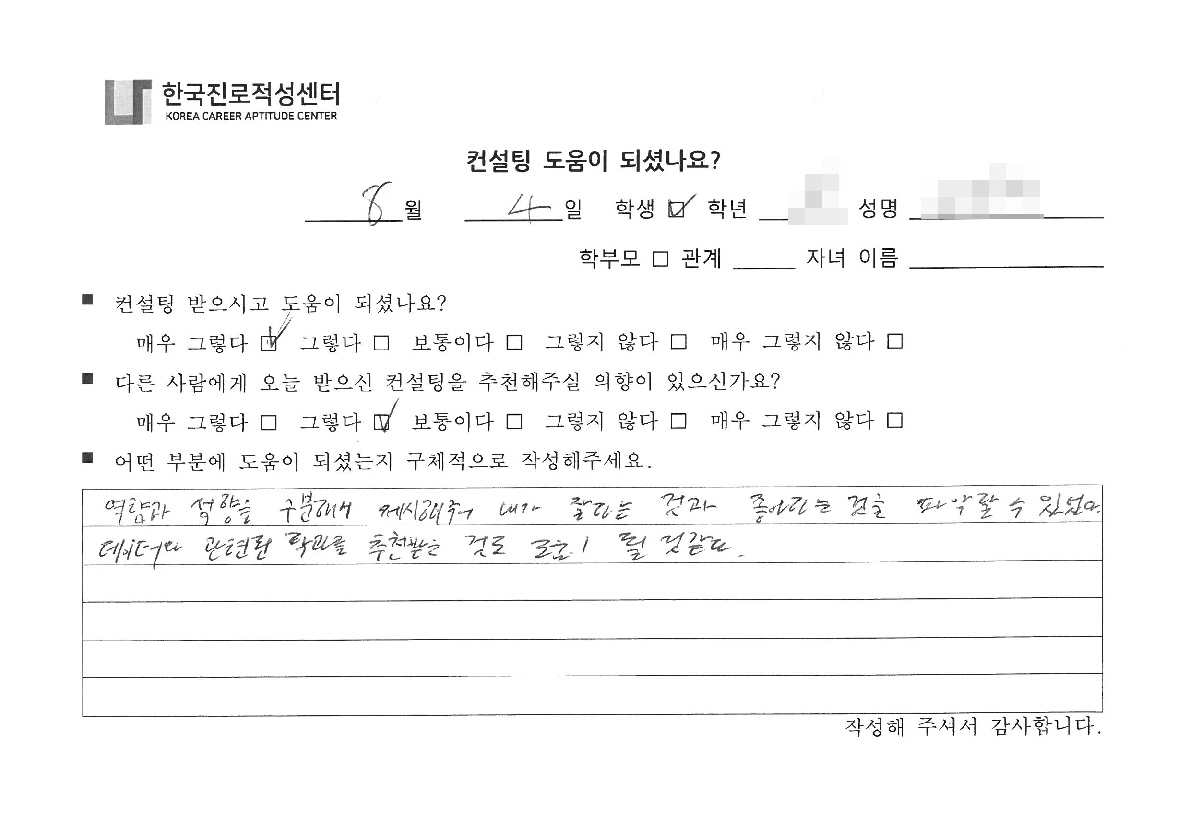 한국진로적성센터
KOREA CAREER APTITUDE CENTER
컨설팅 도움이 되셨나요?
8월 4일 학생 ☑ 학년 성명
학부모 □ 관계 자녀 이름
■ 컨설팅 받으시고 도움이 되셨나요?
매우 그렇다 ☑ 그렇다 □ 보통이다 □ 그렇지 않다 □ 매우 그렇지 않다 □
■ 다른 사람에게 오늘 받으신 컨설팅을 추천해주실 의향이 있으신가요?
매우 그렇다 □ 그렇다 ☑ 보통이다 □ 그렇지 않다 □ 매우 그렇지 않다 □
■ 어떤 부분에 도움이 되셨는지 구체적으로 작성해주세요.
구분해서 제시해줘서 내가 잘하는 것과 좋아하는 것을 파악할 수 있었다.
관련된 학과를 추천받는 것도 도움이 될 것같다.
작성해 주셔서 감사합니다.